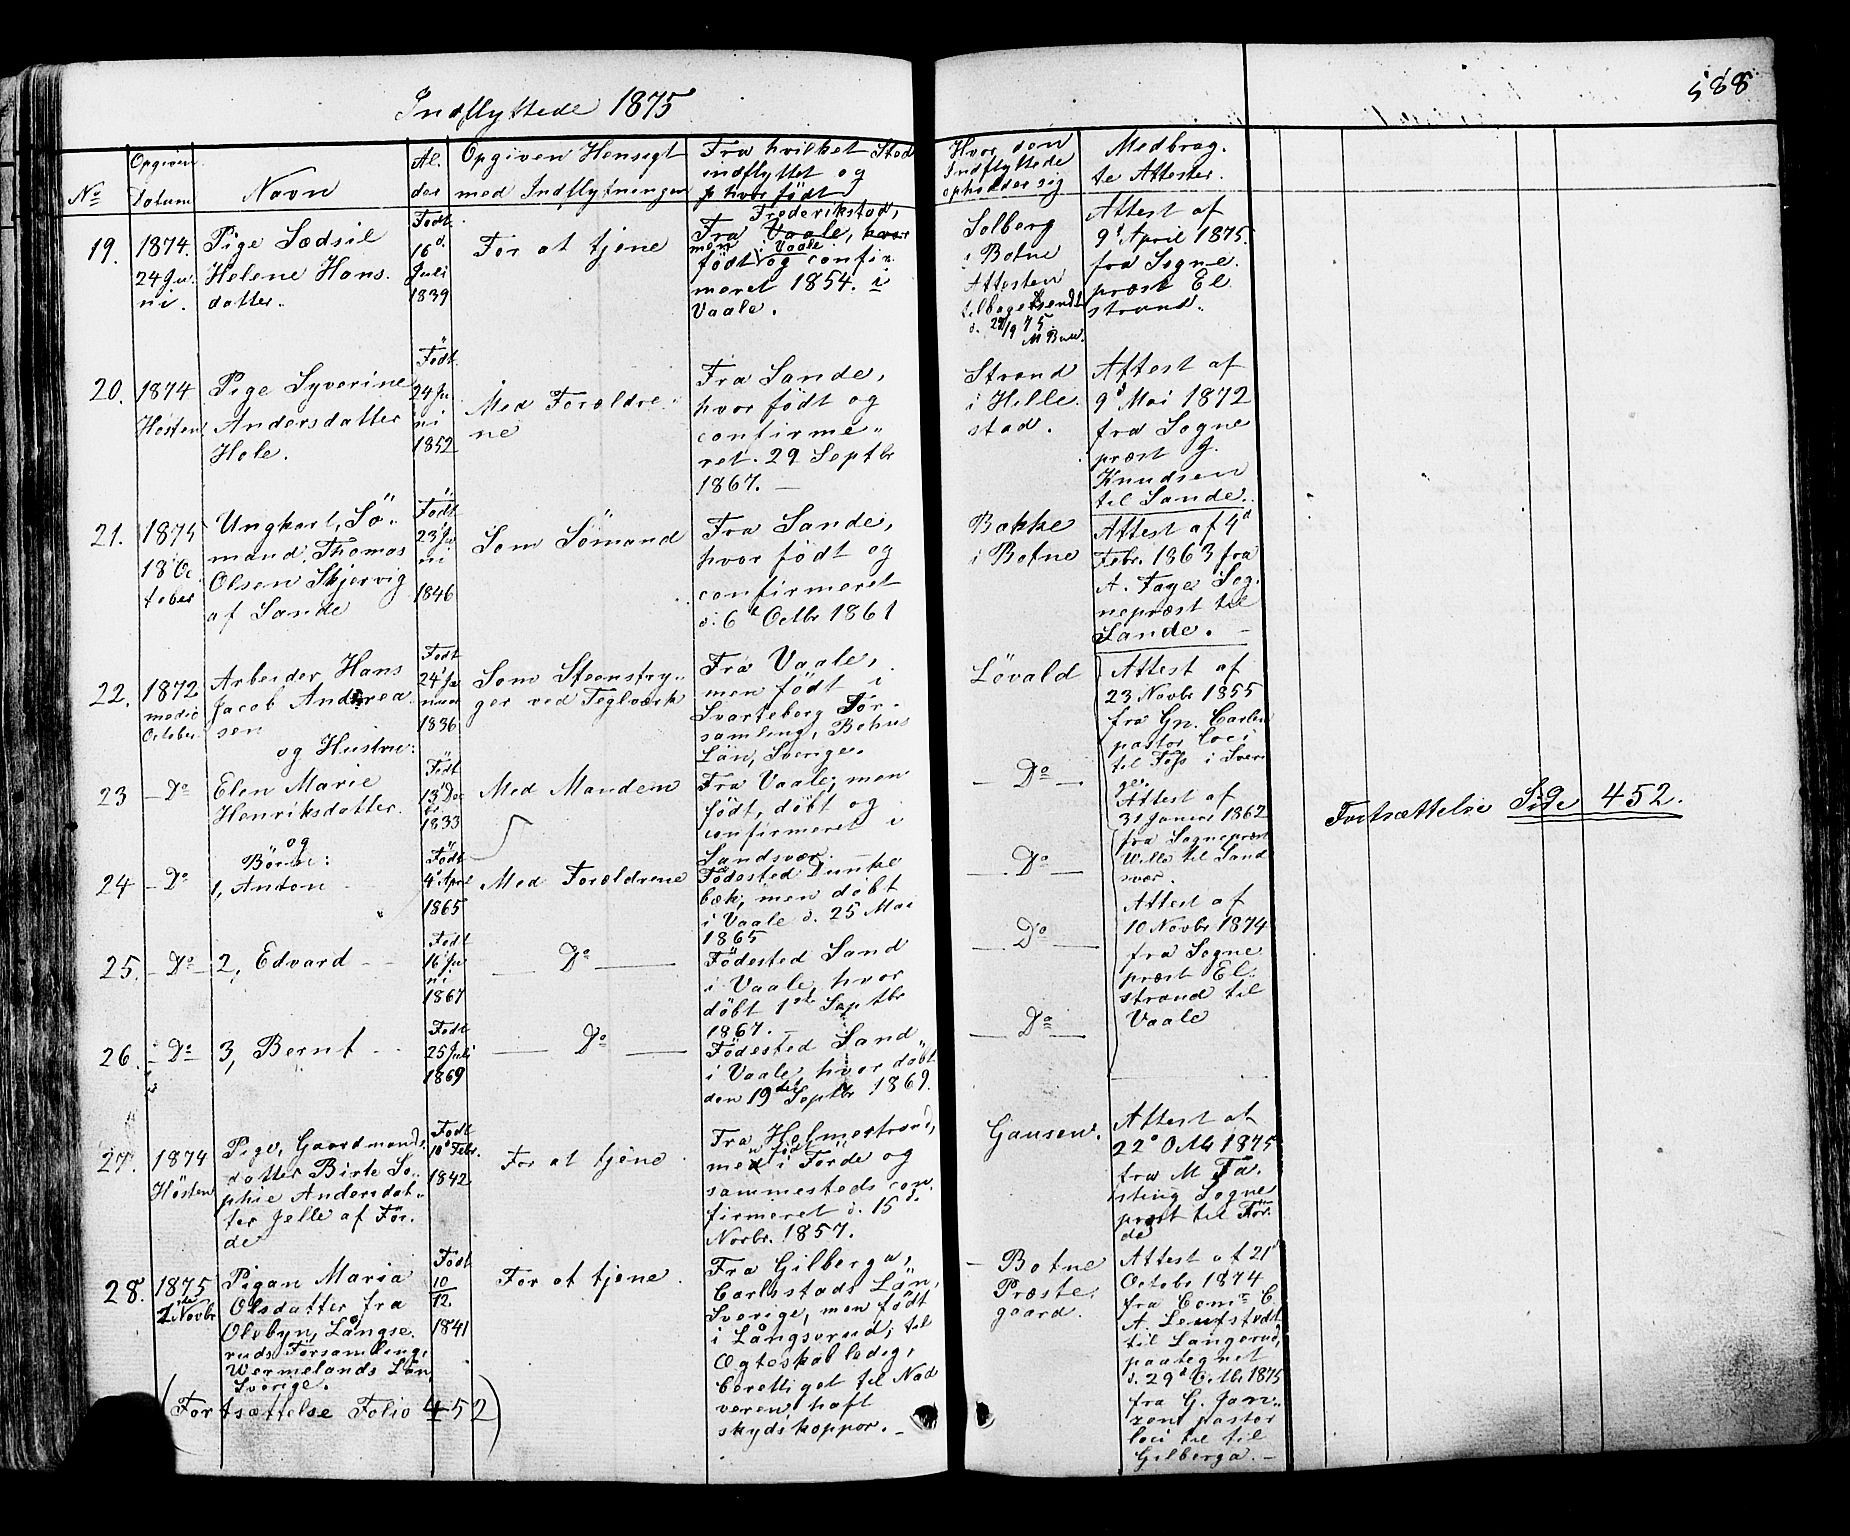 Indflyttede 1875
588
No
Opgiven
Datum
Navn
Al.
der
Opgiven Hensigt
med Indflytningen
Fra hvilket Sted
indflyttet og
hvor født
Hvor den
Indflyttede
opholder sig
Medbrag.
te Attester.
19.
1874.
24 Ju.
ni.
Pige Sedsil
Helene Hans.
datter.
Født
16d
Juli
1839
For at tjene
Frederikstad,
Fra Vaale, hvor
men i Vaale
født og confir
meret 1854. i
Vaale.
Solberg
i Botne
Attesten
tilbagesendt
Attest af
9d April 1875.
fra Sogne.
præst El
strand.
20.
1874
Høsten
Pige Syverine
Andersdatter
Hole.
Født
24 Ju
ni
1852
Med Forældre
ne
Fra Sande,
hvor født og
confirme„
ret. 29 Septbr
1867. —
Strand
i Hille
stad.
Attest af
9d Mai 1872
fra Sogne
præst G.
Knudsen
til Sande.
21.
1875
18 Oc
tober
Ungkarl, Sö„
mand. Thomas
Olsen Skjervig
af Sande
Født
23 Ju
ni
1846
Som Sömand
Fra Sande,
hvor født og
confirmeret
d. 6t Octbr 1861
Bakke
i Botne
Attest af 4d
Febr. 1863 fra
A. Faye Sog.
nepræst til
Sande. —
22.
1872
medio
October
Arbeider, Hans
Jacob Andrea
sen
og Hustru:
Født
24 Ja
nuar
1836
Som Steenstry„
ger ved Teglværk
Fra Vaale,
men født i
Svarteborg For
samling, Bohus
Län, Sverige.
Lövald
Attest af
23 Novbr 1855
fra Gn. Carlen
pastor loci
til Foss i Sveri
ge.
23
— Do
Elen Marie
Henriksdatter.
og
Børn:
Født
13 De
1833
Med Manden
Fra Vaale; men
født, døbt og
confirmeret i
Sandsvær.
— Do —
Attest af
31 Januri 1862
fra Sognepræst
Wille til Sand
svær.
24
— Do
1, Anton
Født
4d April
1865
Med Forældrene
Födested Dunke
bæk; men døbt
i Vaale d. 25 Mai
1865
— Do —
Attest af
10 Novbr 1874
fra Sogne
præst El„
strand til
Vaale
25.
— Do —
2, Edvard
Født
16 Ju
ni
1867
— Do —
Födested Sand
i Vaale, hvor
døbt 1ste Septbr
1867. —
— Do —
26.
— Do —
3, Bernt
Født
25 Juli
1869
— Do —
Födested Sand„
i Vaale, hvor døbt
den 19det Septbr 1869.
— Do —
27.
1874
Høsten
Pige, Gaardmands
datter Birte So„
phie Andersdat„
ter Jelle af För„
de
Født
10d Febr.
1842
For at tjene
Fra Holmestrand,
men i Förde og
sammesteds con
firmeret d. 15d
Novbr. 1857.
Gausen.
Attest af
22d Octbr 1875
fra M Ta.
sting Sogne
præst til För
de
28.
1875
2 Novbr
Pigan Maria
Olsdatter fra
Olebyn, Långse.
ruds Forsamling,
Wermelands Län
Sverige.
Født
10/12.
1841
For at tjene
Fra Gilberga,
Carlsstads Län,
Sverige, men født
i Långserud; til
Ogteskab ledig,
berettiget til Nad
veren, haft
skydskoppor. —
Botne
Præste.
gaard.
Attest af 21d
October 1874
fra Comr C.
til Langerud,
paategnet
d. 29d Octbr 1875
fra G. Jan„
zon pastor
loci til
Gilberga. —
(Fortsættelse Folio 452)
Fortsættelse Side 452.